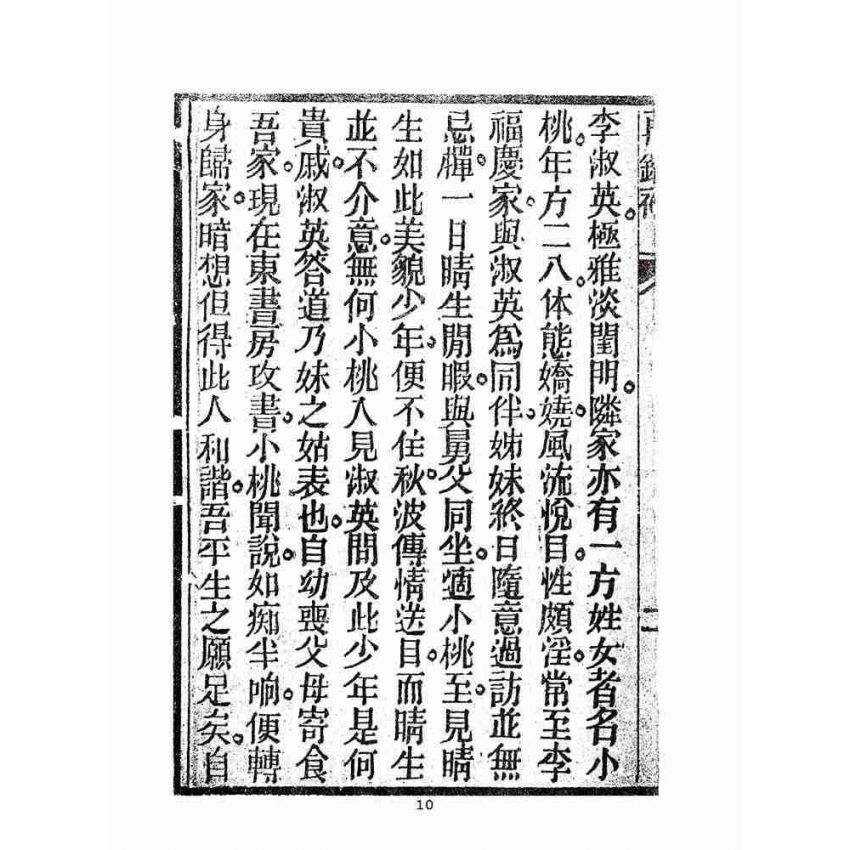 李淑英。極雅淡閨明。隣家亦有一方姓女者名小
桃。年方二八。体態嬌嬈。風流悅目。性頗淫。常至李
福慶家。與淑英爲同伴。姊妹終日隨意過訪並無
忌憚。一日晴生閒暇。與舅父同坐。適小桃至。見晴
生如此美貌少年。便不住秋波傳情送目。而晴生
並不介意。無何小桃入見淑英問及此少年是何
貴戚。淑英答道乃妹之姑表也。自幼喪父母寄食
吾家。現在東書房攻書。小桃聞說。如痴半晌。便轉
身歸家。暗想但得此人和諧。吾平生之願足矣。自
二
10